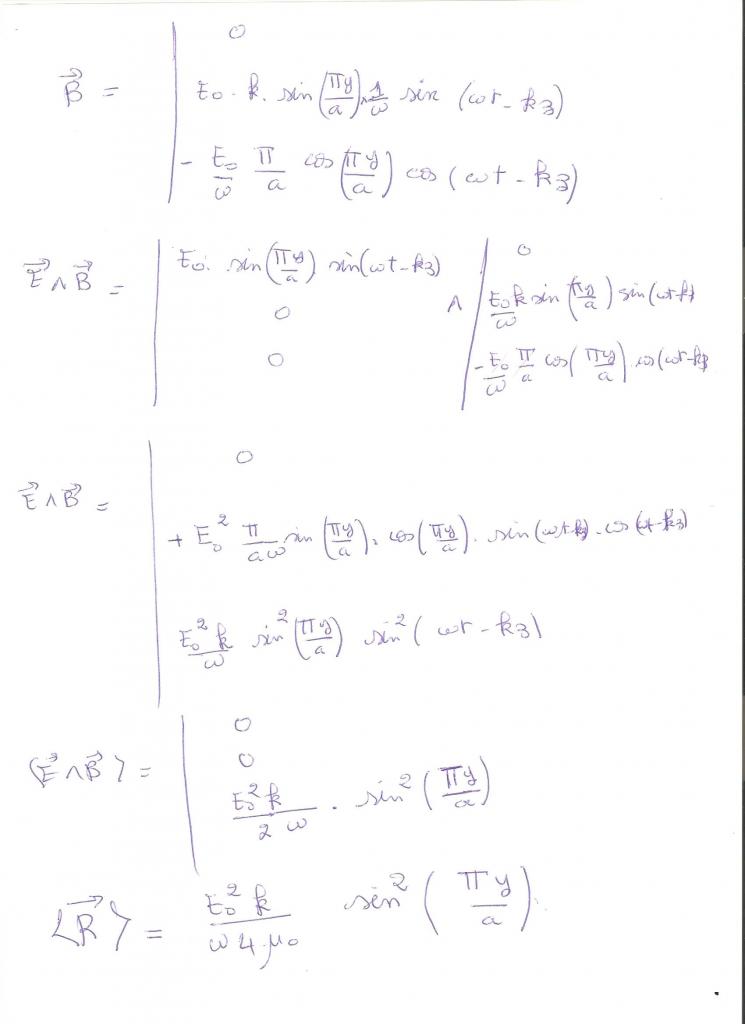 0
B⃗ = E₀ · k · sin(πy/a) · 1/ω sin (ωt - kz)
- E₀/ω π/a cos(πy/a) cos (ωt - kz)
E⃗ ∧ B⃗ = E₀ · sin(πy/a) sin(ωt - kz) ∧ 0
0 E₀k/ω sin(πy/a) sin(ωt-kz)
0 - E₀/ω π/a cos(πy/a) cos(ωt-kz)
0
E⃗ ∧ B⃗ = + E₀² π/aω sin(πy/a) · cos(πy/a) · sin(ωt-kz) · cos(ωt-kz)
E₀²k/ω sin²(πy/a) sin²(ωt - kz)
0
⟨E⃗ ∧ B⃗⟩ = 0
E₀²k/2ω · sin²(πy/a)
⟨R⃗⟩ = E₀²k/ω4μ₀ sin²(πy/a)